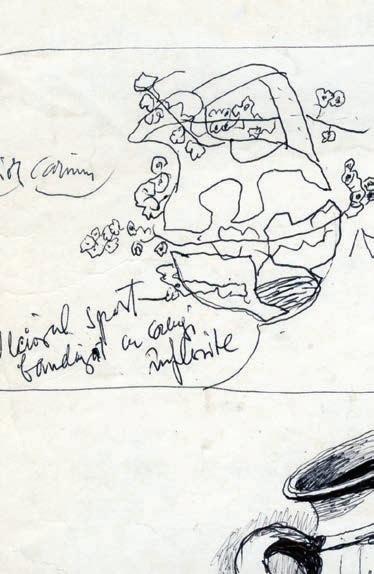 Ulciorul spart
bandajat cu crengi
înflorite